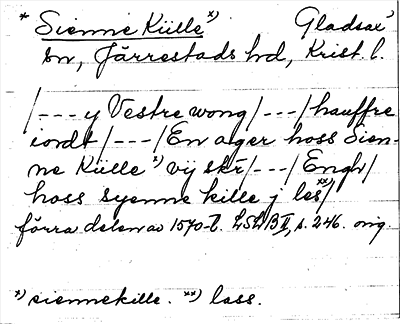 * Sienne Külle *) Gladsax
sn, Järrestads hd, Krist. l.
/---y Vestre wong/---/hauffre
iordt/---/En ager hoss Sien-
ne Külle *) vij skr/---/Engh/
hoss syenne kille j les **)/
förra delen av 1570-t. LSLB II, s. 246. orig.
*) siennekille. **) lass.